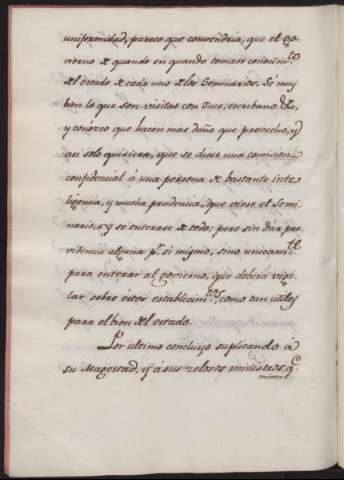 uniformidad, parece que convendria, que el Go-
vierno de quando en quando tomase conocim.to
del estado de cada uno de los Seminarios. Sé muy
bien lo que son visitas con Juez, escribano &c,
y conozco que hacen mas daño que provecho, y
asi solo quisiera, que se diese una comision
confidencial á una persona de bastante inte
ligencia, y mucha prudencia, que viese el Semi
nario, y se enterase de todo; pero sin dár pro
videncia alguna p.r si mismo, sino unicam.te
para enterar al Govierno, que deberá vigi
lar sobre estos establecim.tos, como tan utiles
para el bien del estado.
Por ultimo concluyo suplicando á
su Magestad, y á sus zelosos ministros, q.e
miren